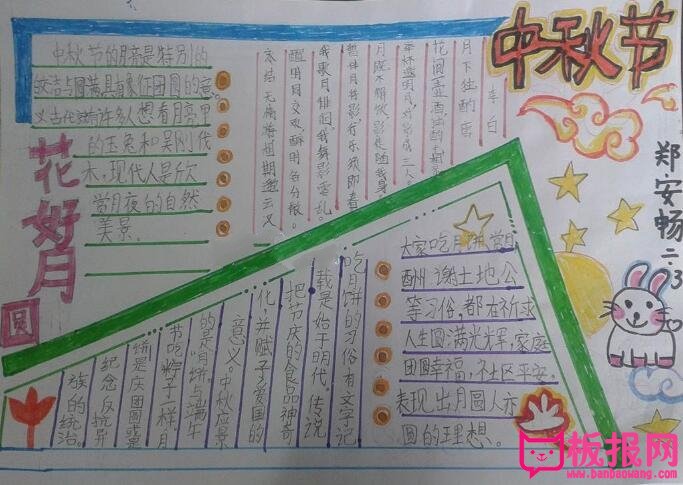 中秋节
中秋节的月亮是特别的
皎洁与圆满具有象征团圆的意
义古代就有许多人想看月亮里
的玉兔和吴刚伐
木,现代人是欣
赏月夜的自然
美景。
花好月
圆
月下独酌 唐
李白
花间一壶酒,独酌无相亲
举杯邀明月,对影成三人。
月既不解饮,影徒随我身。
暂伴月将影,行乐须即春
我歌月徘徊,我舞影零乱。
醒时同交欢,醉后各分散。
永结无情游,相期邈云汉
郑安畅二.3
吃月饼的习俗有文字记
载是始于明代。传说
把节庆的食品神奇
化,并赋予了爱国的
意义。中秋应景
的是"月饼"与端午
节吃粽子一样月
饼是庆团圆或
纪念反抗异
族的统治。
大家吃月饼,赏月
酬谢土地公
等习俗,都在祈求
人生圆满光辉,家庭
团圆幸福,社区平安,
表现出月圆人亦
圆的理想。
板报网
www.banbaowang.com